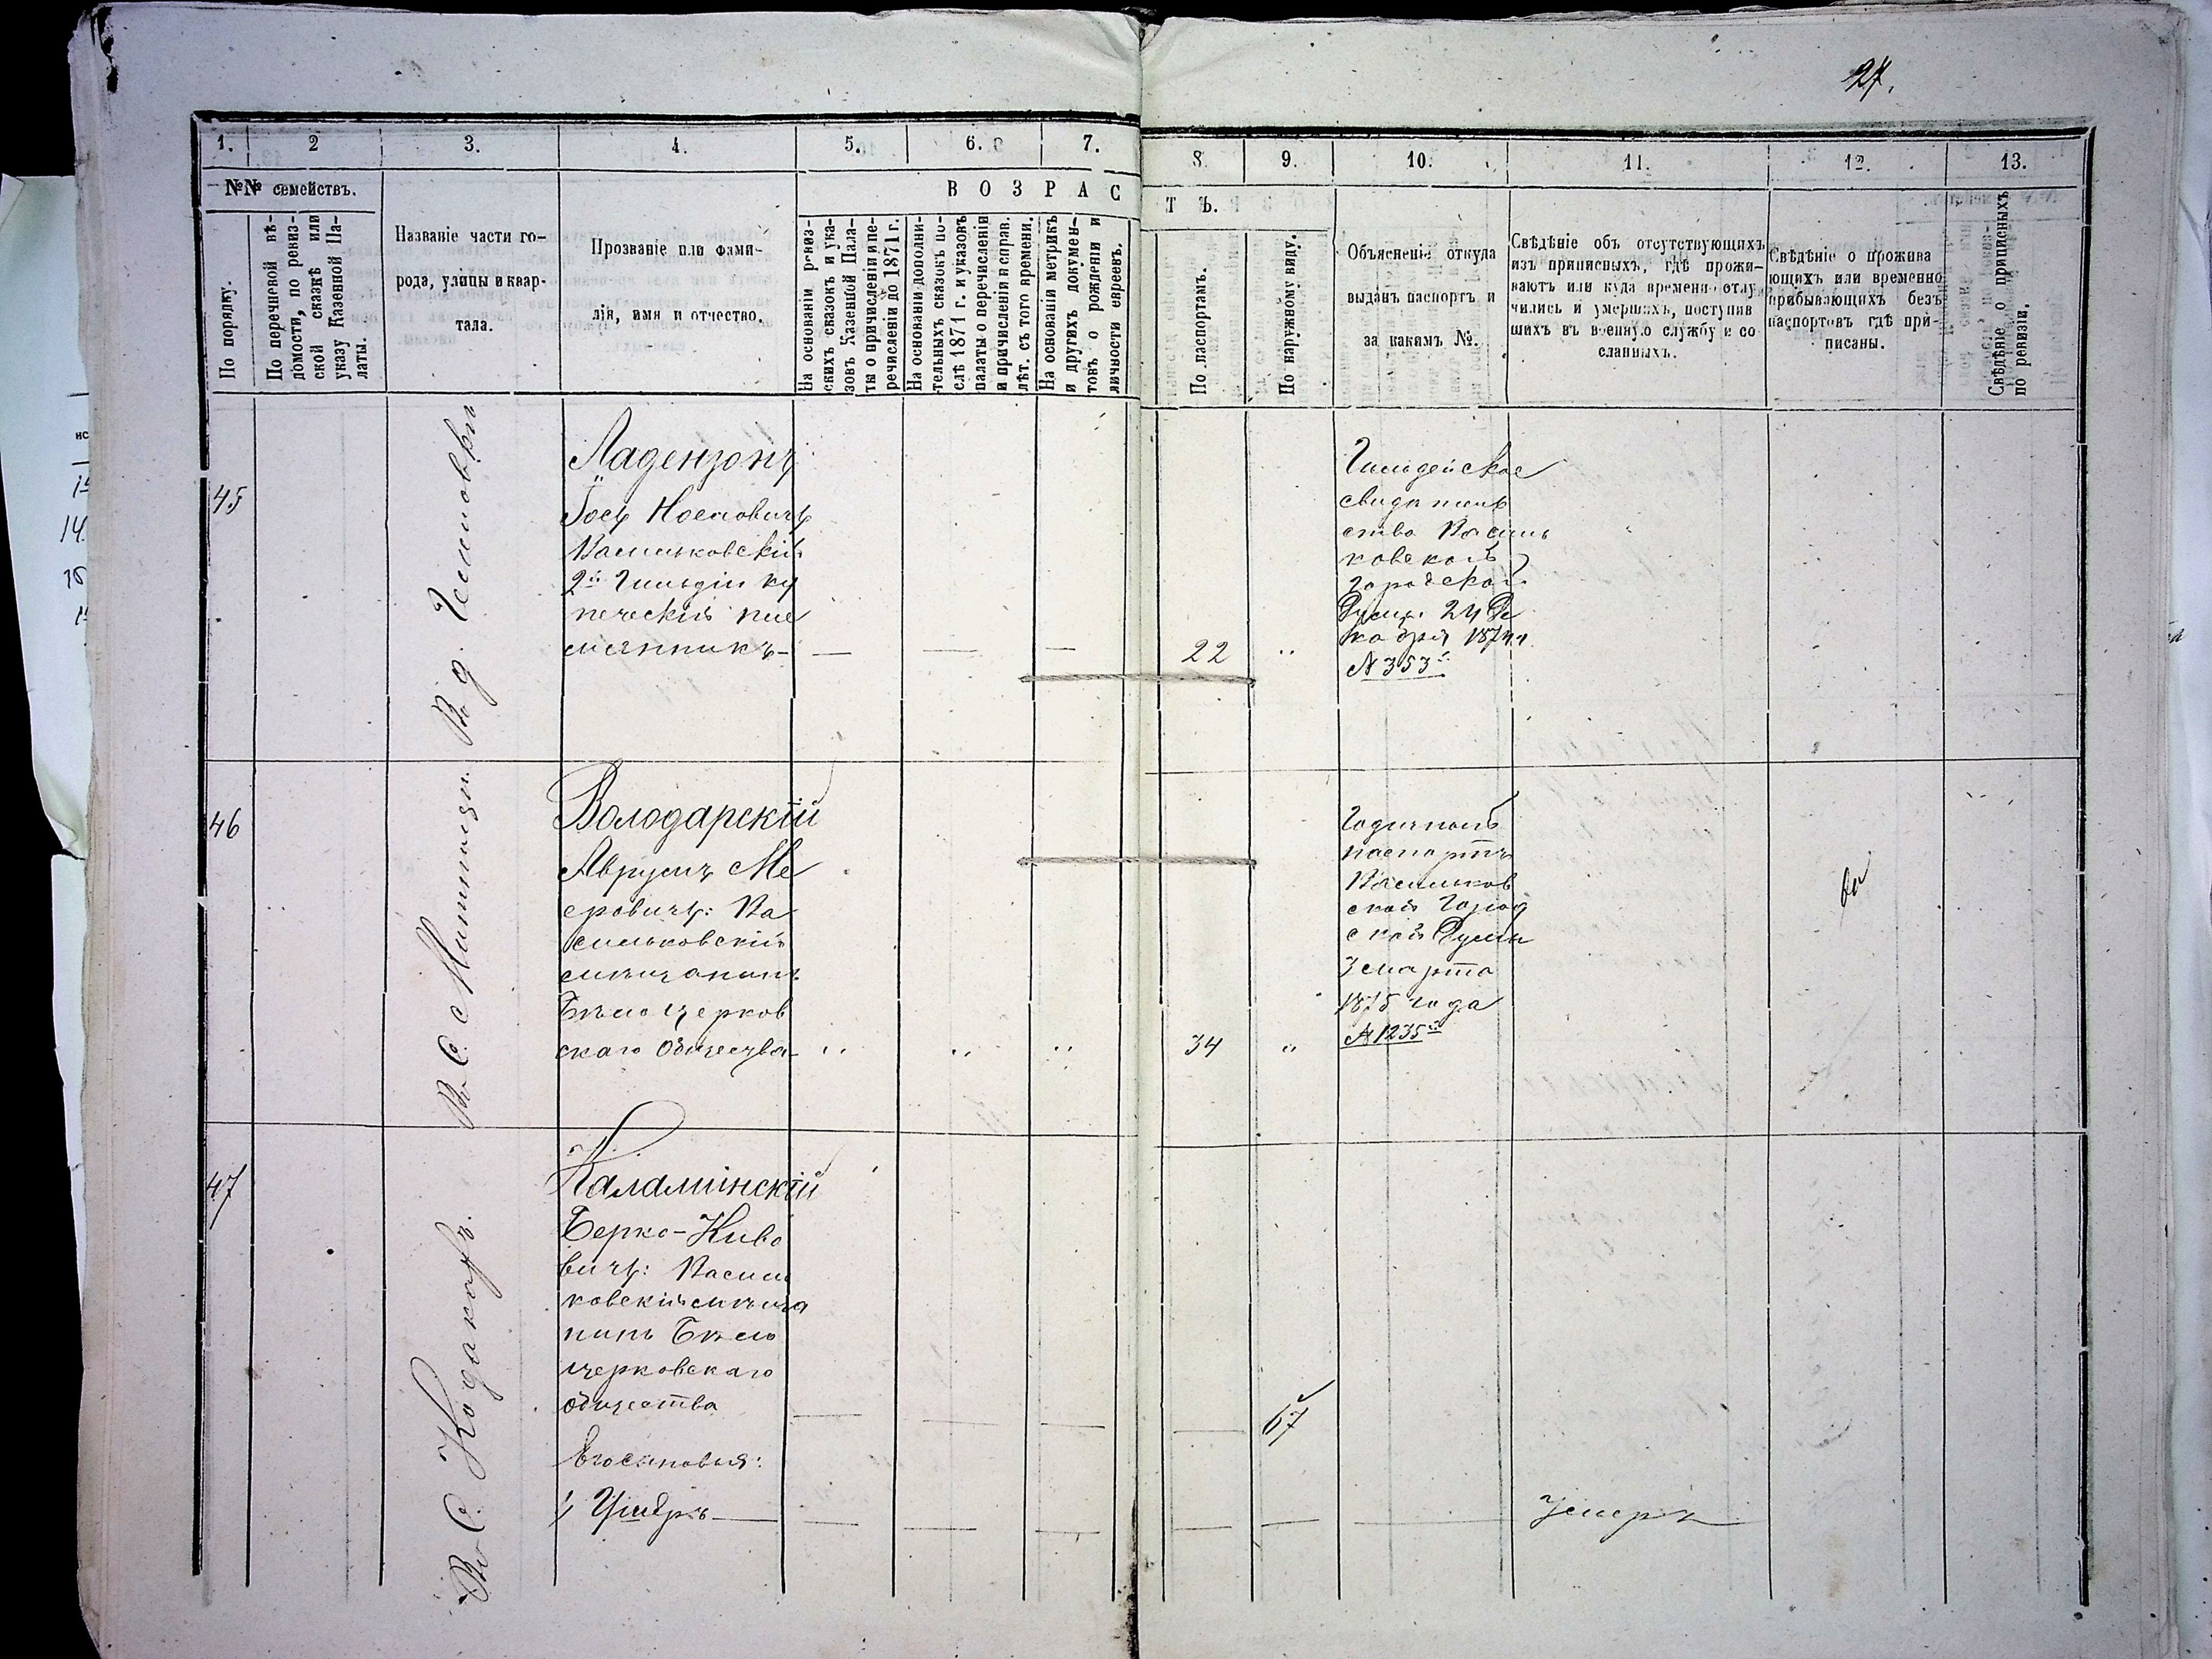 27.
1. 2 3. 4. 5. 6. 7. 8 9. 10. 11. 12. 13.
№№ семействъ.
По порядку.
По перечневой вѣ-
домости, по ревиз-
ской сказкѣ или
указу Казенной Па-
латы.
Названіе части го-
рода, улицы и квар-
тала.
Прозваніе или фами-
лія, имя и отчество.
ВОЗРАСТЪ.
На основаніи ревиз-
скихъ сказокъ и ука-
зовъ Казенной Пала-
ты о причисленіи и пе-
речисленіи до 1871 г.
На основаніи дополни-
тельныхъ сказокъ по-
слѣ 1871 г. и указовъ
палаты о перечисленіи
и причисленіи и справ.
лѣт. съ того времени.
На основаніи метрикъ
и другихъ докумен-
товъ о рожденіи и
личности евреевъ.
По паспортамъ.
По наружному виду.
Объясненіе откуда
выданъ паспортъ и
за какимъ №.
Свѣдѣніе объ отсутствующихъ
изъ приписныхъ, гдѣ прожи-
ваютъ или куда временно отлу
чились и умершихъ, поступив
шихъ въ военную службу и со
сланныхъ.
Свѣдѣніе о прожива
ющихъ или временно
прибывающихъ безъ
паспортовъ гдѣ при-
писаны.
Свѣдѣніе о приписныхъ
по ревизіи.
45
Ладензонъ
Іось Носковичъ
Васильковскій
2й Гильдіи ку
печескій пле
мянникъ —
22
Гильдейское
свидѣтель
ство Василь
ковской
Городской
Думы 24 Де
кабря 1874 г.
№ 353й
46
Володарскій
Аврумъ Ме
еровичъ: Ва
сильковскій
мѣщанинъ
Бѣлоцерков
скаго Общества
34
Годичной
паспортъ
Васильков
ской Город
ской Думы
3 марта
1875 года
№ 1235й
47
Каламинскій
Берко-Киво
вичъ: Василь
ковскій мѣща
нинъ Бѣло
церковскаго
общества
67
Его сыновья:
1, —
Умеръ